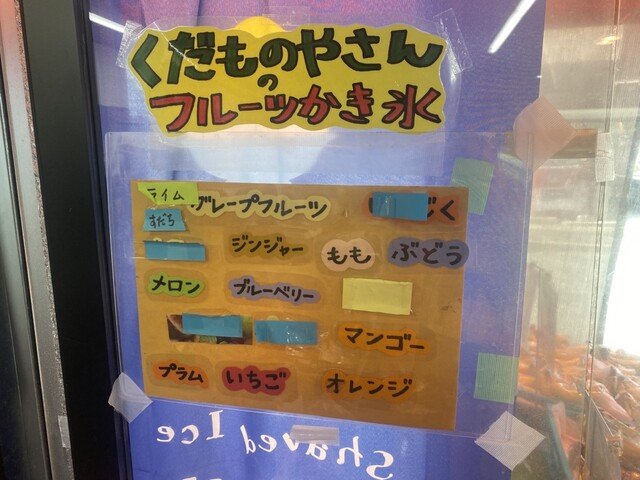 くだものやさん
の
フルーツかき氷
ライム
グレープフルーツ
じく
すだち
ジンジャー
もも
ぶどう
メロン
ブルーベリー
マンゴー
プラム
いちご
オレンジ
Shaved Ice